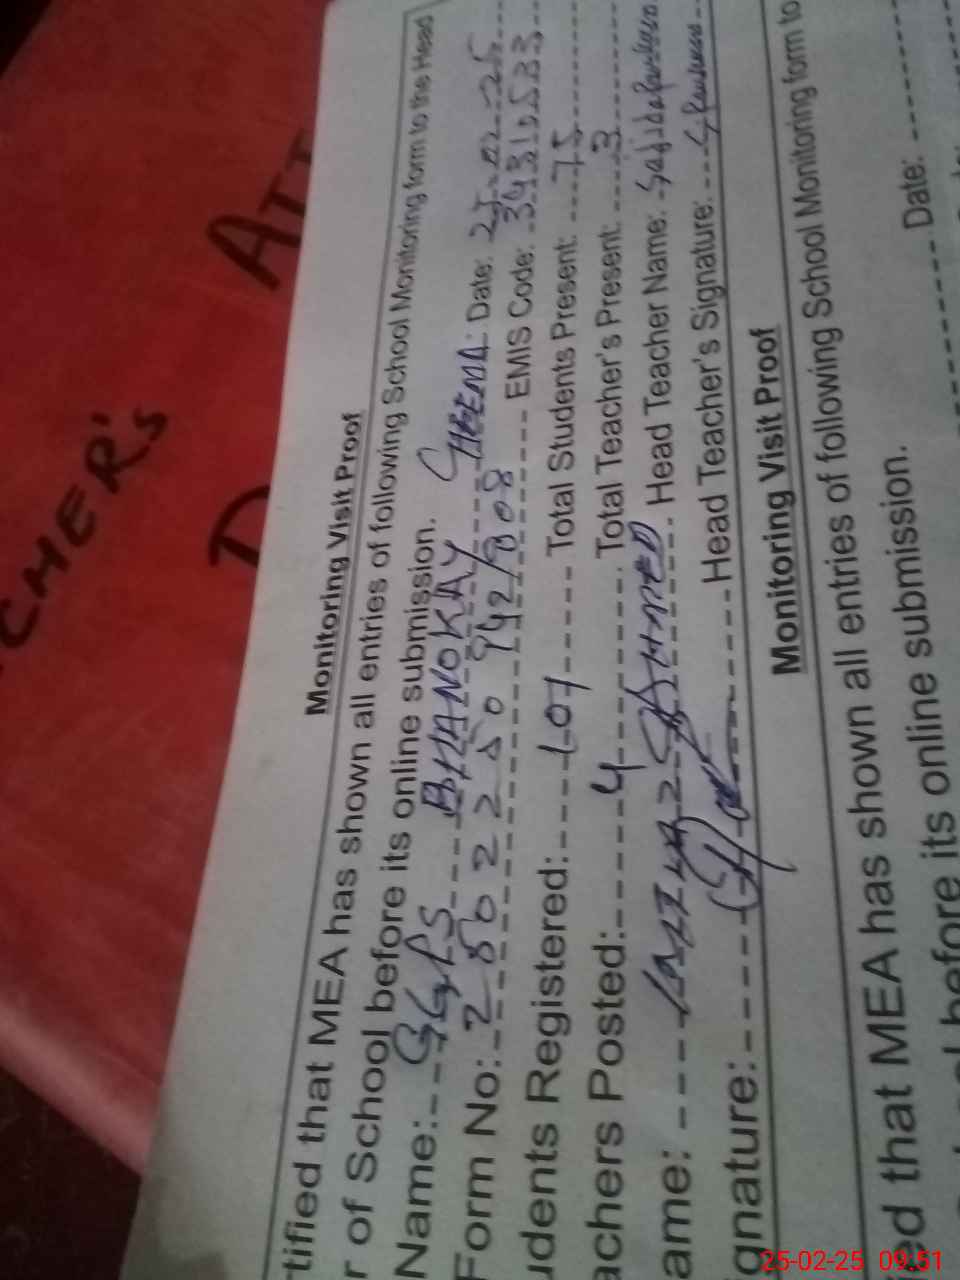 CHER'S ATT
D
Monitoring Visit Proof
tified that MEA has shown all entries of following School Monitoring form to the Head
r of School before its online submission.
Name: GGPS BHANOKAY CHEEMA Date: 25-02-25
Form No: 2502250942808 EMIS Code: 34310533
udents Registered: 107 Total Students Present: 75
achers Posted: 4 Total Teacher's Present: 3
ame: AHMED Head Teacher Name: Sajida Parveen
gnature: Head Teacher's Signature: SParveen
Monitoring Visit Proof
ed that MEA has shown all entries of following School Monitoring form to
before its online submission.
Date:
25-02-25 09:51